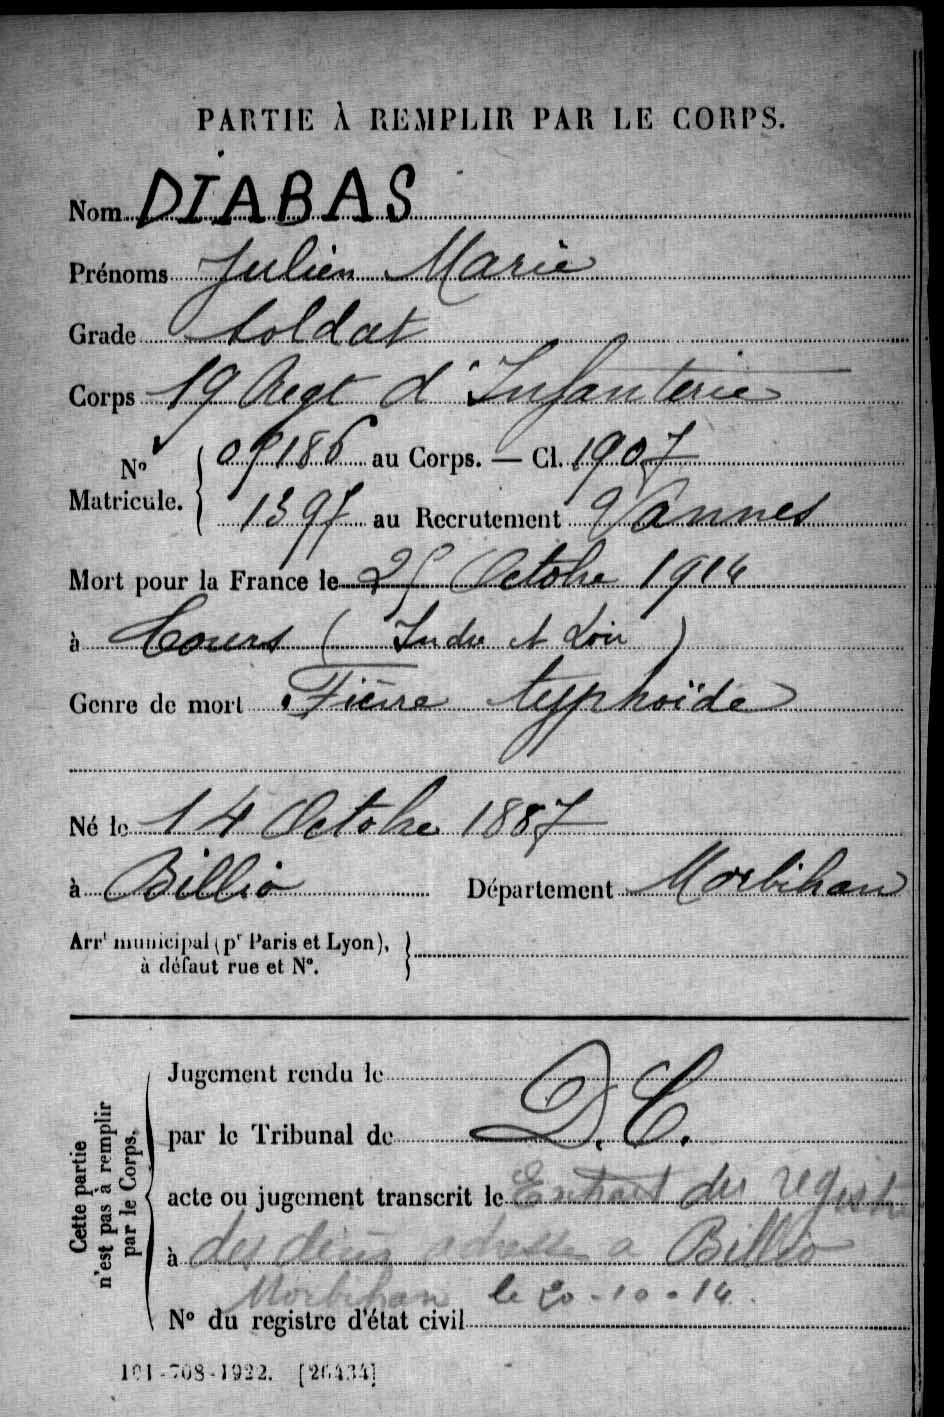 PARTIE À REMPLIR PAR LE CORPS.
Nom DIABAS
Prénoms Julien Marie
Grade Soldat
Corps 19 Regt d'Infanterie
Nº Matricule. { 09186 au Corps. — Cl. 1907
1397 au Recrutement Vannes
Mort pour la France le 25 Octobre 1914
à Tours (Indre et Loire)
Genre de mort Fièvre typhoïde
Né le 14 Octobre 1887
à Billio Département Morbihan
Arrt municipal (pr Paris et Lyon), }
à défaut rue et Nº.
Cette partie
n'est pas à remplir
par le Corps.
Jugement rendu le
par le Tribunal de D.C.
acte ou jugement transcrit le Extrait du registre
à des décès adressé a Billio
Morbihan le 20-10-14.
Nº du registre d'état civil
101-708-1922. [26434]